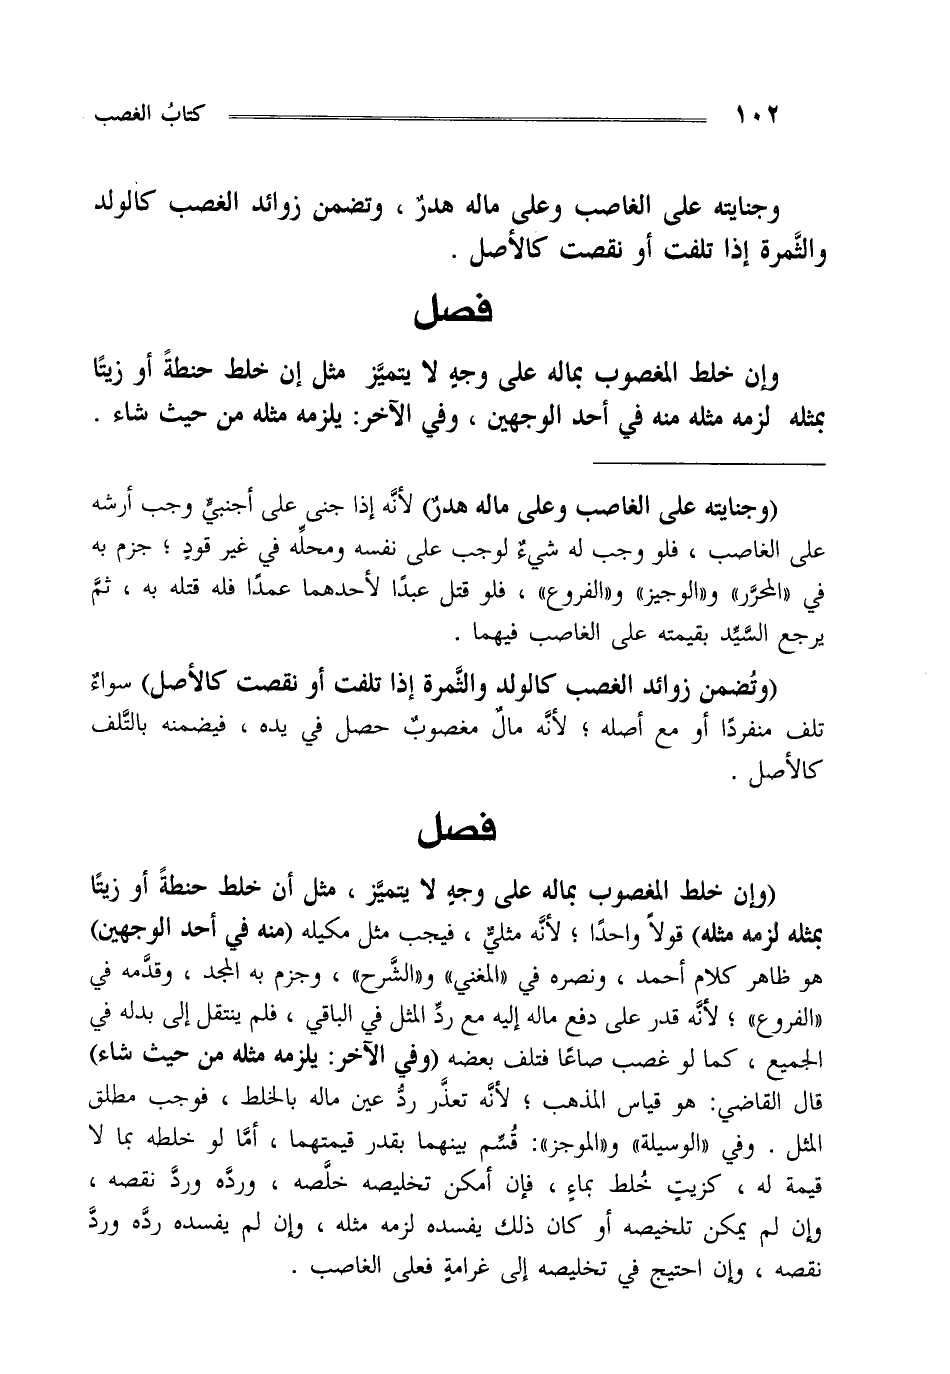 ١٠٢ كتابُ الغصب
وجنايته على الغاصب وعلى ماله هدرٌ ، وتضمن زوائد الغصب كالولد
والثَّمرة إذا تلفت أو نقصت كالأصل .
فصل
وإن خلط المغصوب بماله على وجهٍ لا يتميَّز مثل إن خلط حنطةً أو زيتًا
بمثله لزمه مثله منه في أحد الوجهين ، وفي الآخر: يلزمه مثله من حيث شاء .
(وجنايته على الغاصب وعلى ماله هدرٌ) لأنَّه إذا جنى على أجنبيٍّ وجب أرشه
على الغاصب ، فلو وجب له شيءٌ لوجب على نفسه ومحلِّه في غير قودٍ ؛ جزم به
في «المحرَّر» و«الوجيز» و«الفروع» ، فلو قتل عبدًا لأحدهما عمدًا فله قتله به ، ثمَّ
يرجع السَّيِّد بقيمته على الغاصب فيهما .
(وتُضمن زوائد الغصب كالولد والثَّمرة إذا تلفت أو نقصت كالأصل) سواءٌ
تلف منفردًا أو مع أصله ؛ لأنَّه مالٌ مغصوبٌ حصل في يده ، فيضمنه بالتَّلف
كالأصل .
فصل
(وإن خلط المغصوب بماله على وجهٍ لا يتميَّز ، مثل أن خلط حنطةً أو زيتًا
بمثله لزمه مثله) قولاً واحدًا ؛ لأنَّه مثليٌّ ، فيجب مثل مكيله (منه في أحد الوجهين)
هو ظاهر كلام أحمد ، ونصره في «المغني» و«الشَّرح» ، وجزم به المجد ، وقدَّمه في
«الفروع» ؛ لأنَّه قدر على دفع ماله إليه مع ردِّ المثل في الباقي ، فلم ينتقل إلى بدله في
الجميع ، كما لو غصب صاعًا فتلف بعضه (وفي الآخر: يلزمه مثله من حيث شاء)
قال القاضي: هو قياس المذهب ؛ لأنَّه تعذَّر ردُّ عين ماله بالخلط ، فوجب مطلق
المثل . وفي «الوسيلة» و«الموجز»: قُسِّم بينهما بقدر قيمتهما ، أمَّا لو خلطه بما لا
قيمة له ، كزيتٍ خُلط بماءٍ ، فإن أمكن تخليصه خلَّصه ، وردَّه وردَّ نقصه ،
وإن لم يمكن تلخيصه أو كان ذلك يفسده لزمه مثله ، وإن لم يفسده ردَّه وردَّ
نقصه ، وإن احتيج في تخليصه إلى غرامةٍ فعلى الغاصب .